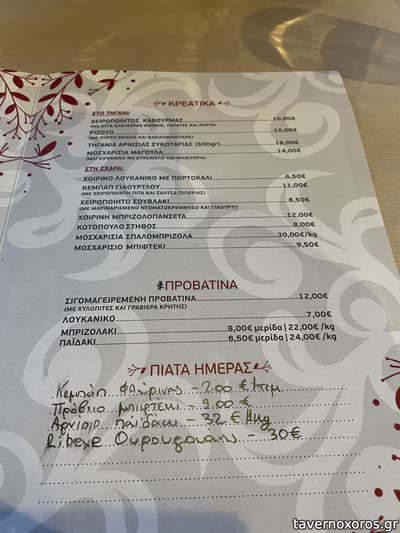 ΚΡΕΑΤΙΚΑ
ΣΤΟ ΤΗΓΑΝΙ:
ΧΕΙΡΟΠΟΙΗΤΟΣ ΚΑΒΟΥΡΜΑΣ 10,00€
ΡΙΖΟΤΟ 10,00€
ΤΗΓΑΝΙΑ ΑΡΝΙΣΙΑΣ ΣΥΚΩΤΑΡΙΑΣ (500gr) 18,00€
ΜΟΣΧΑΡΙΣΙΑ ΜΑΓΟΥΛΑ 14,00€
(ΜΑΓΕΙΡΕΜΕΝΑ ΜΕ ΣΥΚΟΜΕΛΟ ΚΑΙ ΜΑΝΙΤΑΡΙΑ)
ΣΤΗ ΣΧΑΡΑ:
ΧΟΙΡΙΝΟ ΛΟΥΚΑΝΙΚΟ ΜΕ ΠΟΡΤΟΚΑΛΙ 6,50€
ΚΕΜΠΑΠ ΓΙΑΟΥΡΤΛΟΥ 11,00€
(ΜΕ ΧΕΙΡΟΠΟΙΗΤΗ ΠΙΤΑ ΚΑΙ ΣΑΛΤΣΑ ΠΙΠΕΡΙΑΣ)
ΧΕΙΡΟΠΟΙΗΤΟ ΣΟΥΒΛΑΚΙ 8,50€
(ΜΕ ΜΑΡΙΝΑΡΙΣΜΕΝΟ ΝΤΟΜΑΤΟΚΡΕΜΜΥΔΟ ΚΑΙ ΓΙΑΟΥΡΤΙ)
ΧΟΙΡΙΝΗ ΜΠΡΙΖΟΛΟΠΑΝΣΕΤΑ 12,00€
ΚΟΤΟΠΟΥΛΟ ΣΤΗΘΟΣ 8,00€
ΜΟΣΧΑΡΙΣΙΑ ΣΠΑΛΟΜΠΡΙΖΟΛΑ 30,00€/kg
ΜΟΣΧΑΡΙΣΙΟ ΜΠΙΦΤΕΚΙ 9,50€
ΠΡΟΒΑΤΙΝΑ
ΣΙΓΟΜΑΓΕΙΡΕΜΕΝΗ ΠΡΟΒΑΤΙΝΑ 12,00€
(ΜΕ ΧΥΛΟΠΙΤΕΣ ΚΑΙ ΓΡΑΒΙΕΡΑ ΚΡΗΤΗΣ)
ΛΟΥΚΑΝΙΚΟ 7,00€
ΜΠΡΙΖΟΛΑΚΙ 8,00€ μερίδα | 22,00€ /kg
ΠΑΪΔΑΚΙ 8,50€ μερίδα | 24,00€ /kg
ΠΙΑΤΑ ΗΜΕΡΑΣ
Κεμπάπ Φλώρινας - 2.00 €/τεμ
Πρόβειο μπιφτέκι - 9.00 €
Αρνίσιο παϊδάκι - 32 € /kg
Ribeye Ουρουγουάης - 30€
tavernoxoros.gr